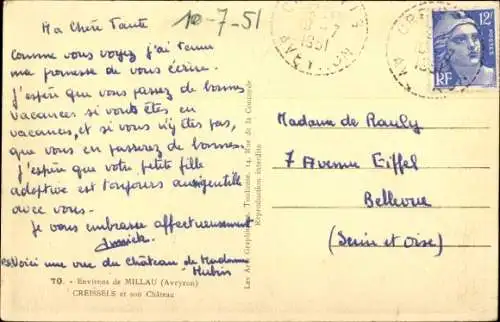 Ma Chère Tante
10-7-51
Comme vous voyez j'ai tenu
ma promesse de vous écrire.
J'espère que vous passez de bonnes
vacances si vous êtes en
vacances, et si vous n'y êtes pas,
que vous en passerez de bonnes.
J'espère que votre petite fille
adoptive est toujours aussi gentille
avec vous.
Je vous embrasse affectueusement
Voici une vue du château de Madame
Hubin
70. - Environs de MILLAU (Aveyron)
CREISSELS et son Château
Les Arts Graphiques, Toulouse, 14, Rue de la Concorde
Reproduction interdite
1951
12F
POSTES
RF
Madame de Rauly
7 Avenue Eiffel
Bellevue
(Seine et Oise)